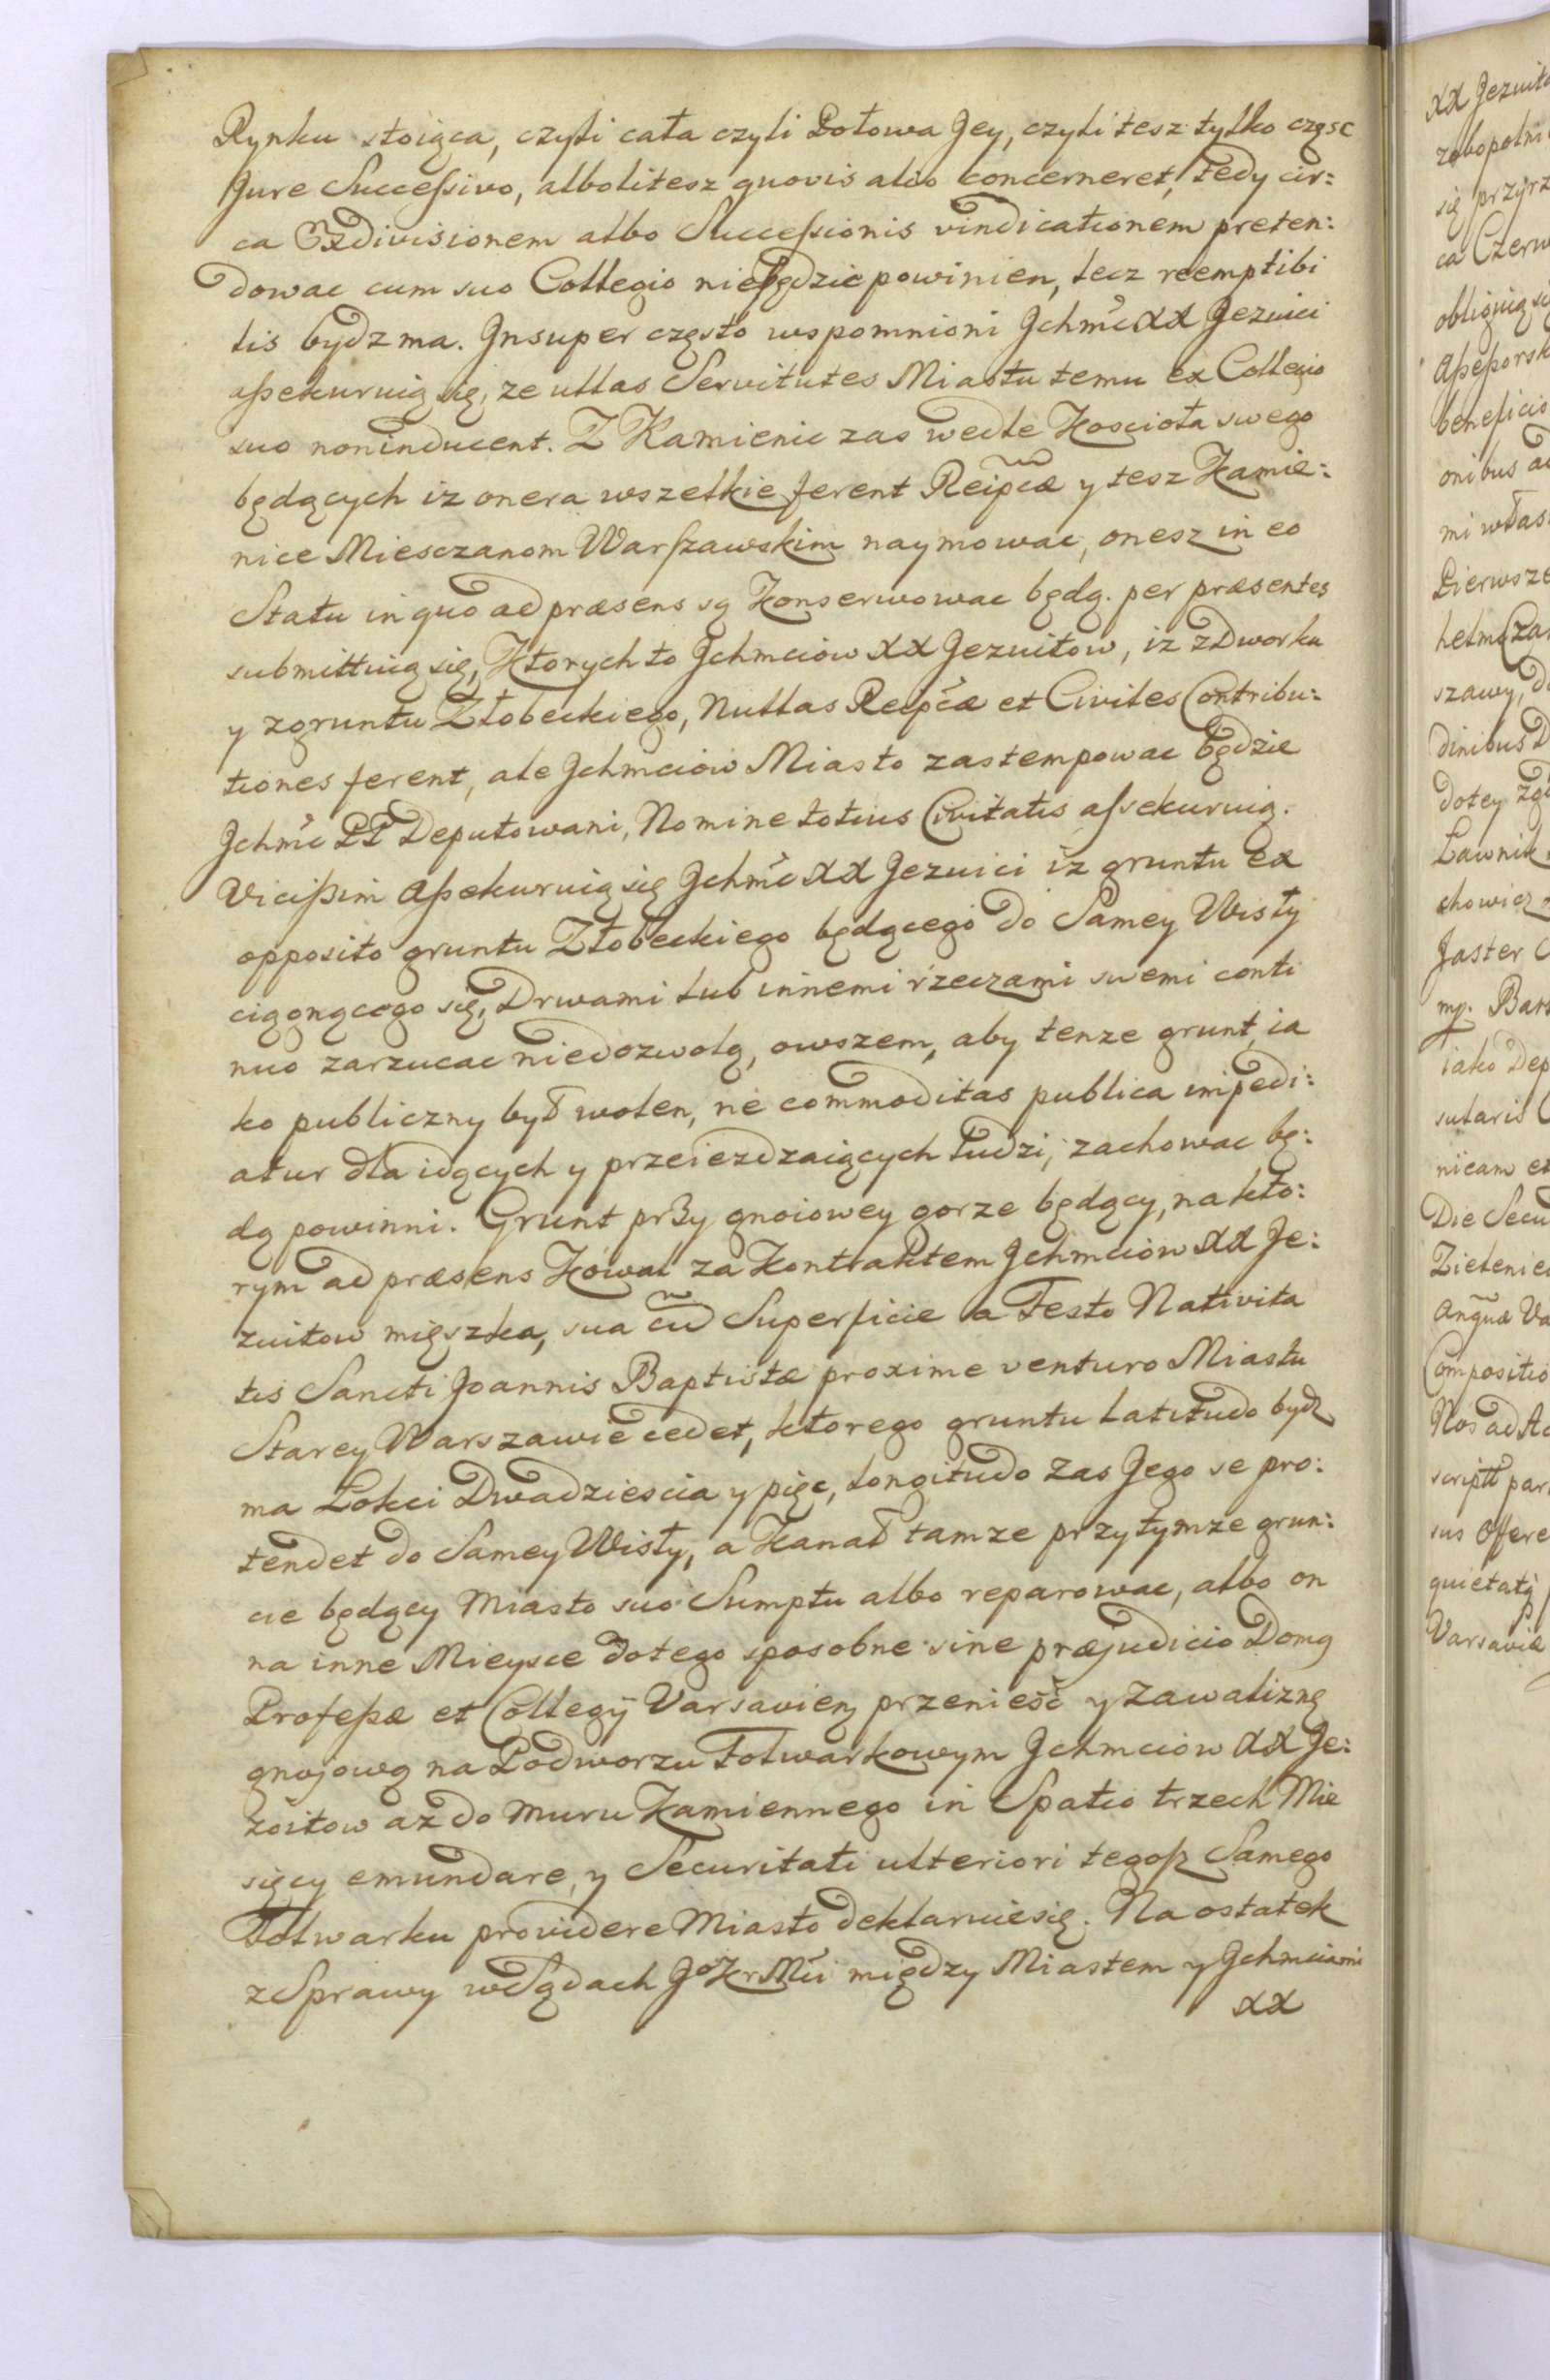 Rynku stoiąca, czyli cała czyli Połowa Jey, czyli tesz tylko częsc
Jure Successivo, albolitesz quovis alio concerneret, tedy cir:
ca Exdivisionem albo Successionis vindicationem preten:
dowac cum suo Collegio niebędzie powinien, lecz reemptibi
lis bydz ma. Insuper często wspomnioni Jchmć XX Jezuici
assekuruią się, ze ullas Servitutes Miastu temu ex Collegio
suo noninducent. Z Kamienic zas wedle Koscioła swego
będących iz onera wszelkie ferent Reipcæ y tesz Kamie:
nice Miesczanom Warszawskim naymowac, onesz in eo
Statu in quo ad præsens są Konserwowac będą. per præsentes
submittuią się, Ktorych to Jchmciow XX Jezuitow, iz z Dworku
y zgruntu Złobeckiego, Nullas Reipcæ et Civiles Contribu:
tiones ferent, ale Jchmciow Miasto zastempowac będzie
Jchmć PP Deputowani, Nomine totius Civitatis assekuruią.
Vicissim Assekuruią się Jchmć XX Jezuici iz gruntu ex
opposito gruntu Złobeckiego będącego do Samey Wisły
ciągnącego się, Drwami lub innemi rzeczami swemi conti
nuo zarzucac niedozwolą, owszem, aby tenze grunt, ia
ko publiczny był wolen, ne commoditas publica impedi:
atur dla idących y przeiezdzaiących ludzi, zachowac bę:
dą powinni. Grunt przy gnoiowey gorze będący, na kto:
rym ad præsens Kowal za Kontraktem Jchmciow XX Je:
zuitow mięszka, sua cũ Superficie a Festo Nativita
tis Sancti Joannis Baptistæ proxime venturo Miastu
Starey Warszawie cedet, ktorego gruntu Latitudo bydz
ma Łokci Dwadziescia y pięc, longitudo zas Jego se pro:
tendet do Samey Wisły, a Kanał tamze przytymze grun:
cie będący Miasto suo Sumptu albo reparowac, albo on
na inne Mieysce dotego sposobne sine præjudicio Domq
Professæ et Collegij Varsavien przenieść y zawaliznę
gnojową na Podworzu Folwarkowym Jchmciow XX Je:
zoitow az do muru Kamiennego in Spatio trzech Mie
sięcy emundare, y Securitati ulteriori tegosz Samego
Folwarku providere Miasto deklaruie się. Na ostatek
z Sprawy w Sądach Jo Kr Mći między Miastem y Jchmciami
XX
XX Jezuit
zobopolni
się przyrz
ca Czerw
obliguią się
Assessorsk
beneficio
onibus
mi włas
Pierwsze
szawy,
dinibus
dotey
Ławnik
chowicz
Jaster
mp.
iako Dep
sularis
nicam et
Die
Zielenie
Compositio
Nos ad
script par
sus Offere
quietatq
Varsaviæ